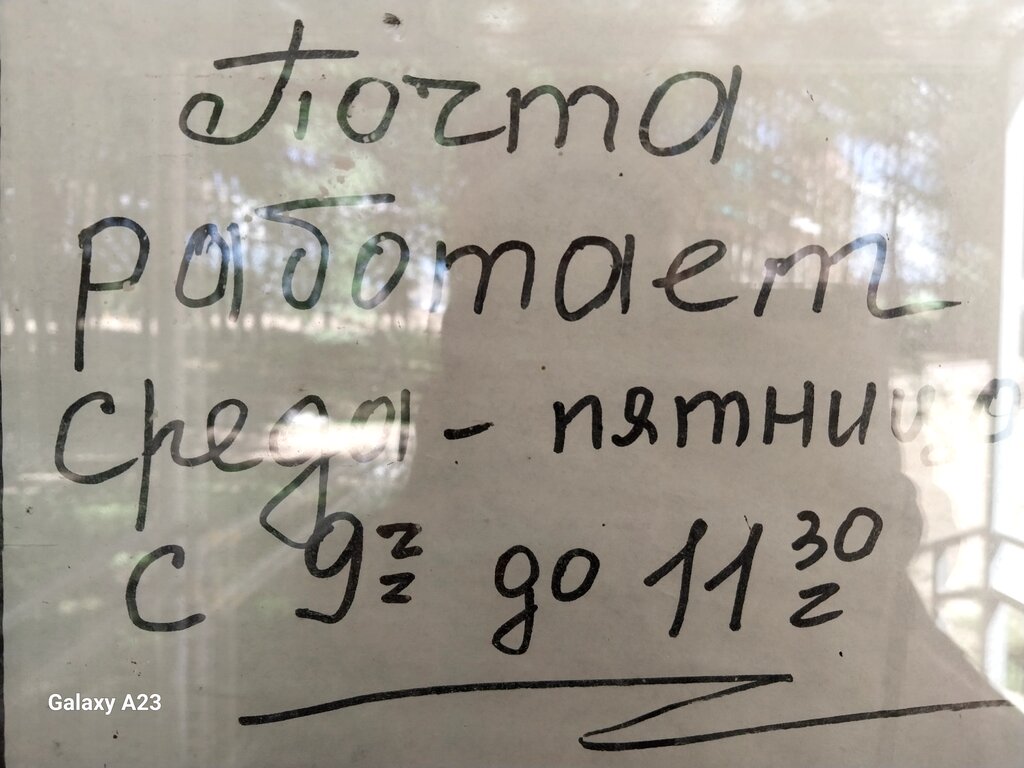 Почта
работает
среда - пятница
с 9 до 11 30
Galaxy A23